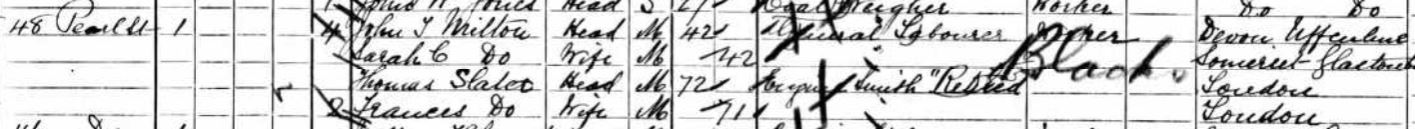 Head S 27 Weigher Worker Do Do
48 Pearl St 1 4 John T Milton Head M 42 General Labourer Worker Devon Uffculme
Sarah C Do Wife M 42 Somerset Glastonb
Thomas Slater Head M 72 Engine Smith "Retired Black. London
2 Frances Do Wife M 71 London